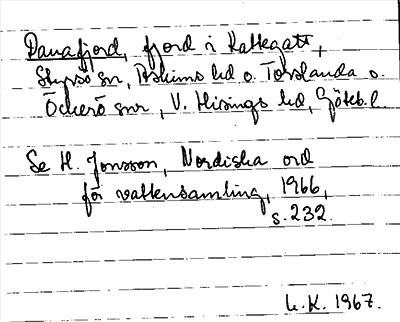 Danafjord, fjord i Kattegatt,
Styrsö sn, Askims hd o. Torslanda o.
Öckerö snr, V. Hisings hd, Göteb. l.
Se H. Jonsson, Nordiska ord
för vattensamling, 1966,
s. 232.
U.K. 1967.